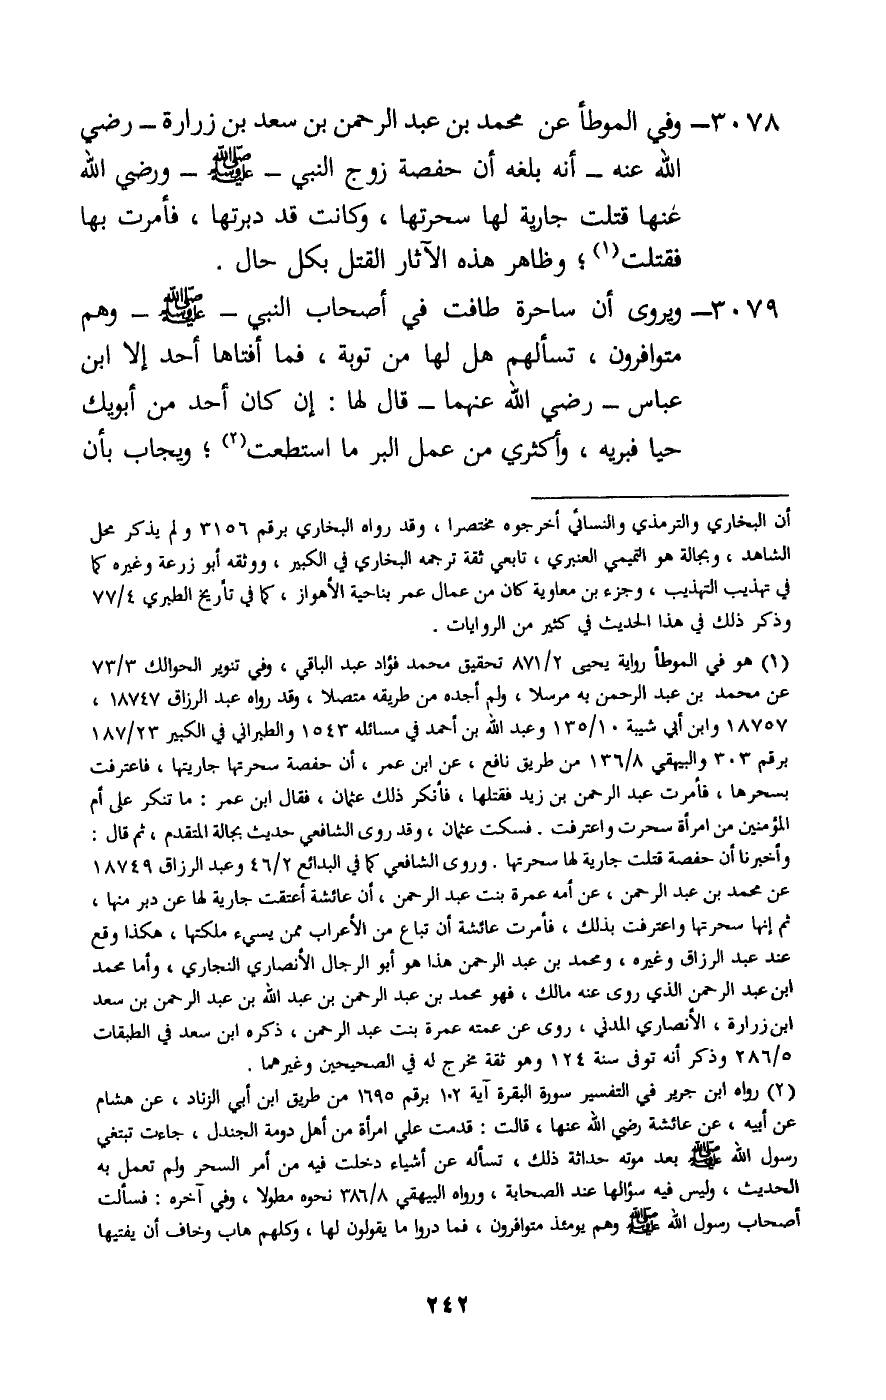 ٣٠٧٨ــ وفي الموطأ عن محمد بن عبد الرحمن بن سعد بن زرارة ــ رضي
الله عنه ــ أنه بلغه أن حفصة زوج النبي ــ ﷺ ــ ورضي الله
عنها قتلت جارية لها سحرتها ، وكانت قد دبرتها ، فأمرت بها
فقتلت(١) ؛ وظاهر هذه الآثار القتل بكل حال .
٣٠٧٩ــ ويروى أن ساحرة طافت في أصحاب النبي ــ ﷺ ــ وهم
متوافرون ، تسألهم هل لها من توبة ، فما أفتاها أحد إلا ابن
عباس ــ رضي الله عنهما ــ قال لها : إن كان أحد من أبويك
حيا فبريه ، وأكثري من عمل البر ما استطعت(٢) ؛ ويجاب بأن
أن البخاري والترمذي والنسائي أخرجوه مختصرا ، وقد رواه البخاري برقم ٣١٥٦ ولم يذكر محل
الشاهد ، وبجالة هو التميمي العنبري ، تابعي ثقة ترجمه البخاري في الكبير ، ووثقه أبو زرعة وغيره كما
في تهذيب التهذيب ، وجزء بن معاوية كان من عمال عمر بناحية الأهواز ، كما في تأريخ الطبري ٧٧/٤
وذكر ذلك في هذا الحديث في كثير من الروايات .
(١) هو في الموطأ رواية يحيى ٨٧١/٢ تحقيق محمد فؤاد عبد الباقي ، وفي تنوير الحوالك ٧٣/٣
عن محمد بن عبد الرحمن به مرسلا ، ولم أجده من طريقه متصلا ، وقد رواه عبد الرزاق ١٨٧٤٧ ،
١٨٧٥٧ وابن أبي شيبة ١٣٥/١٠ وعبد الله بن أحمد في مسائله ١٥٤٣ والطبراني في الكبير ١٨٧/٢٣
برقم ٣٠٣ والبيهقي ١٣٦/٨ من طريق نافع ، عن ابن عمر ، أن حفصة سحرتها جاريتها ، فاعترفت
بسحرها ، فأمرت عبد الرحمن بن زيد فقتلها ، فأنكر ذلك عثمان ، فقال ابن عمر : ما تنكر على أم
المؤمنين من امرأة سحرت واعترفت . فسكت عثمان ، وقد روى الشافعي حديث بجالة المتقدم ، ثم قال :
وأخيرنا أن حفصة قتلت جارية لها سحرتها . وروى الشافعي كما في البدائع ٤٦/٢ وعبد الرزاق ١٨٧٤٩
عن محمد بن عبد الرحمن ، عن أمه عمرة بنت عبد الرحمن ، أن عائشة أعتقت جارية لها عن دبر منها ،
ثم إنها سحرتها واعترفت بذلك ، فأمرت عائشة أن تباع من الأعراب ممن يسيء ملكتها ، هكذا وقع
عند عبد الرزاق وغيره ، ومحمد بن عبد الرحمن هذا هو أبو الرجال الأنصاري النجاري ، وأما محمد
ابن عبد الرحمن الذي روى عنه مالك ، فهو محمد بن عبد الرحمن بن عبد الله بن عبد الرحمن بن سعد
ابن زرارة ، الأنصاري المدني ، روى عن عمته عمرة بنت عبد الرحمن ، ذكره ابن سعد في الطبقات
٢٨٦/٥ وذكر أنه توفى سنة ١٢٤ وهو ثقة مخرج له في الصحيحين وغيرهما .
(٢) رواه ابن جرير في التفسير سورة البقرة آية ١٠٢ برقم ١٦٩٥ من طريق ابن أبي الزناد ، عن هشام
عن أبيه ، عن عائشة رضي الله عنها ، قالت : قدمت علي امرأة من أهل دومة الجندل ، جاءت تبتغي
رسول الله ﷺ بعد موته حداثة ذلك ، تسأله عن أشياء دخلت فيه من أمر السحر ولم تعمل به
الحديث ، وليس فيه سؤالها عند الصحابة ، ورواه البيهقي ٣٨٦/٨ نحوه مطولا ، وفي آخره : فسألت
أصحاب رسول الله ﷺ وهم يومئذ متوافرون ، فما دروا ما يقولون لها ، وكلهم هاب وخاف أن يفتيها
٢٤٢